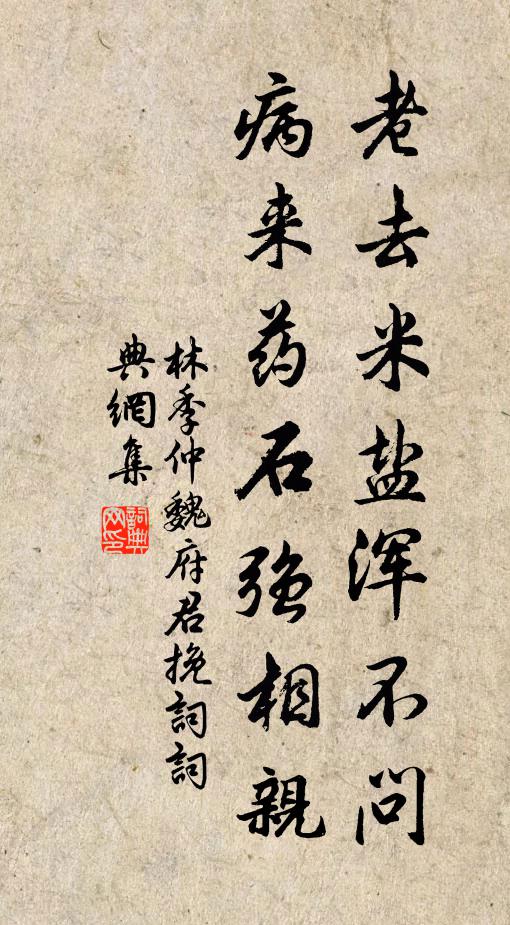 老去米盐浑不问
病来药石强相親
林季仲魏府君挽詞詞
典網集
詞典網印